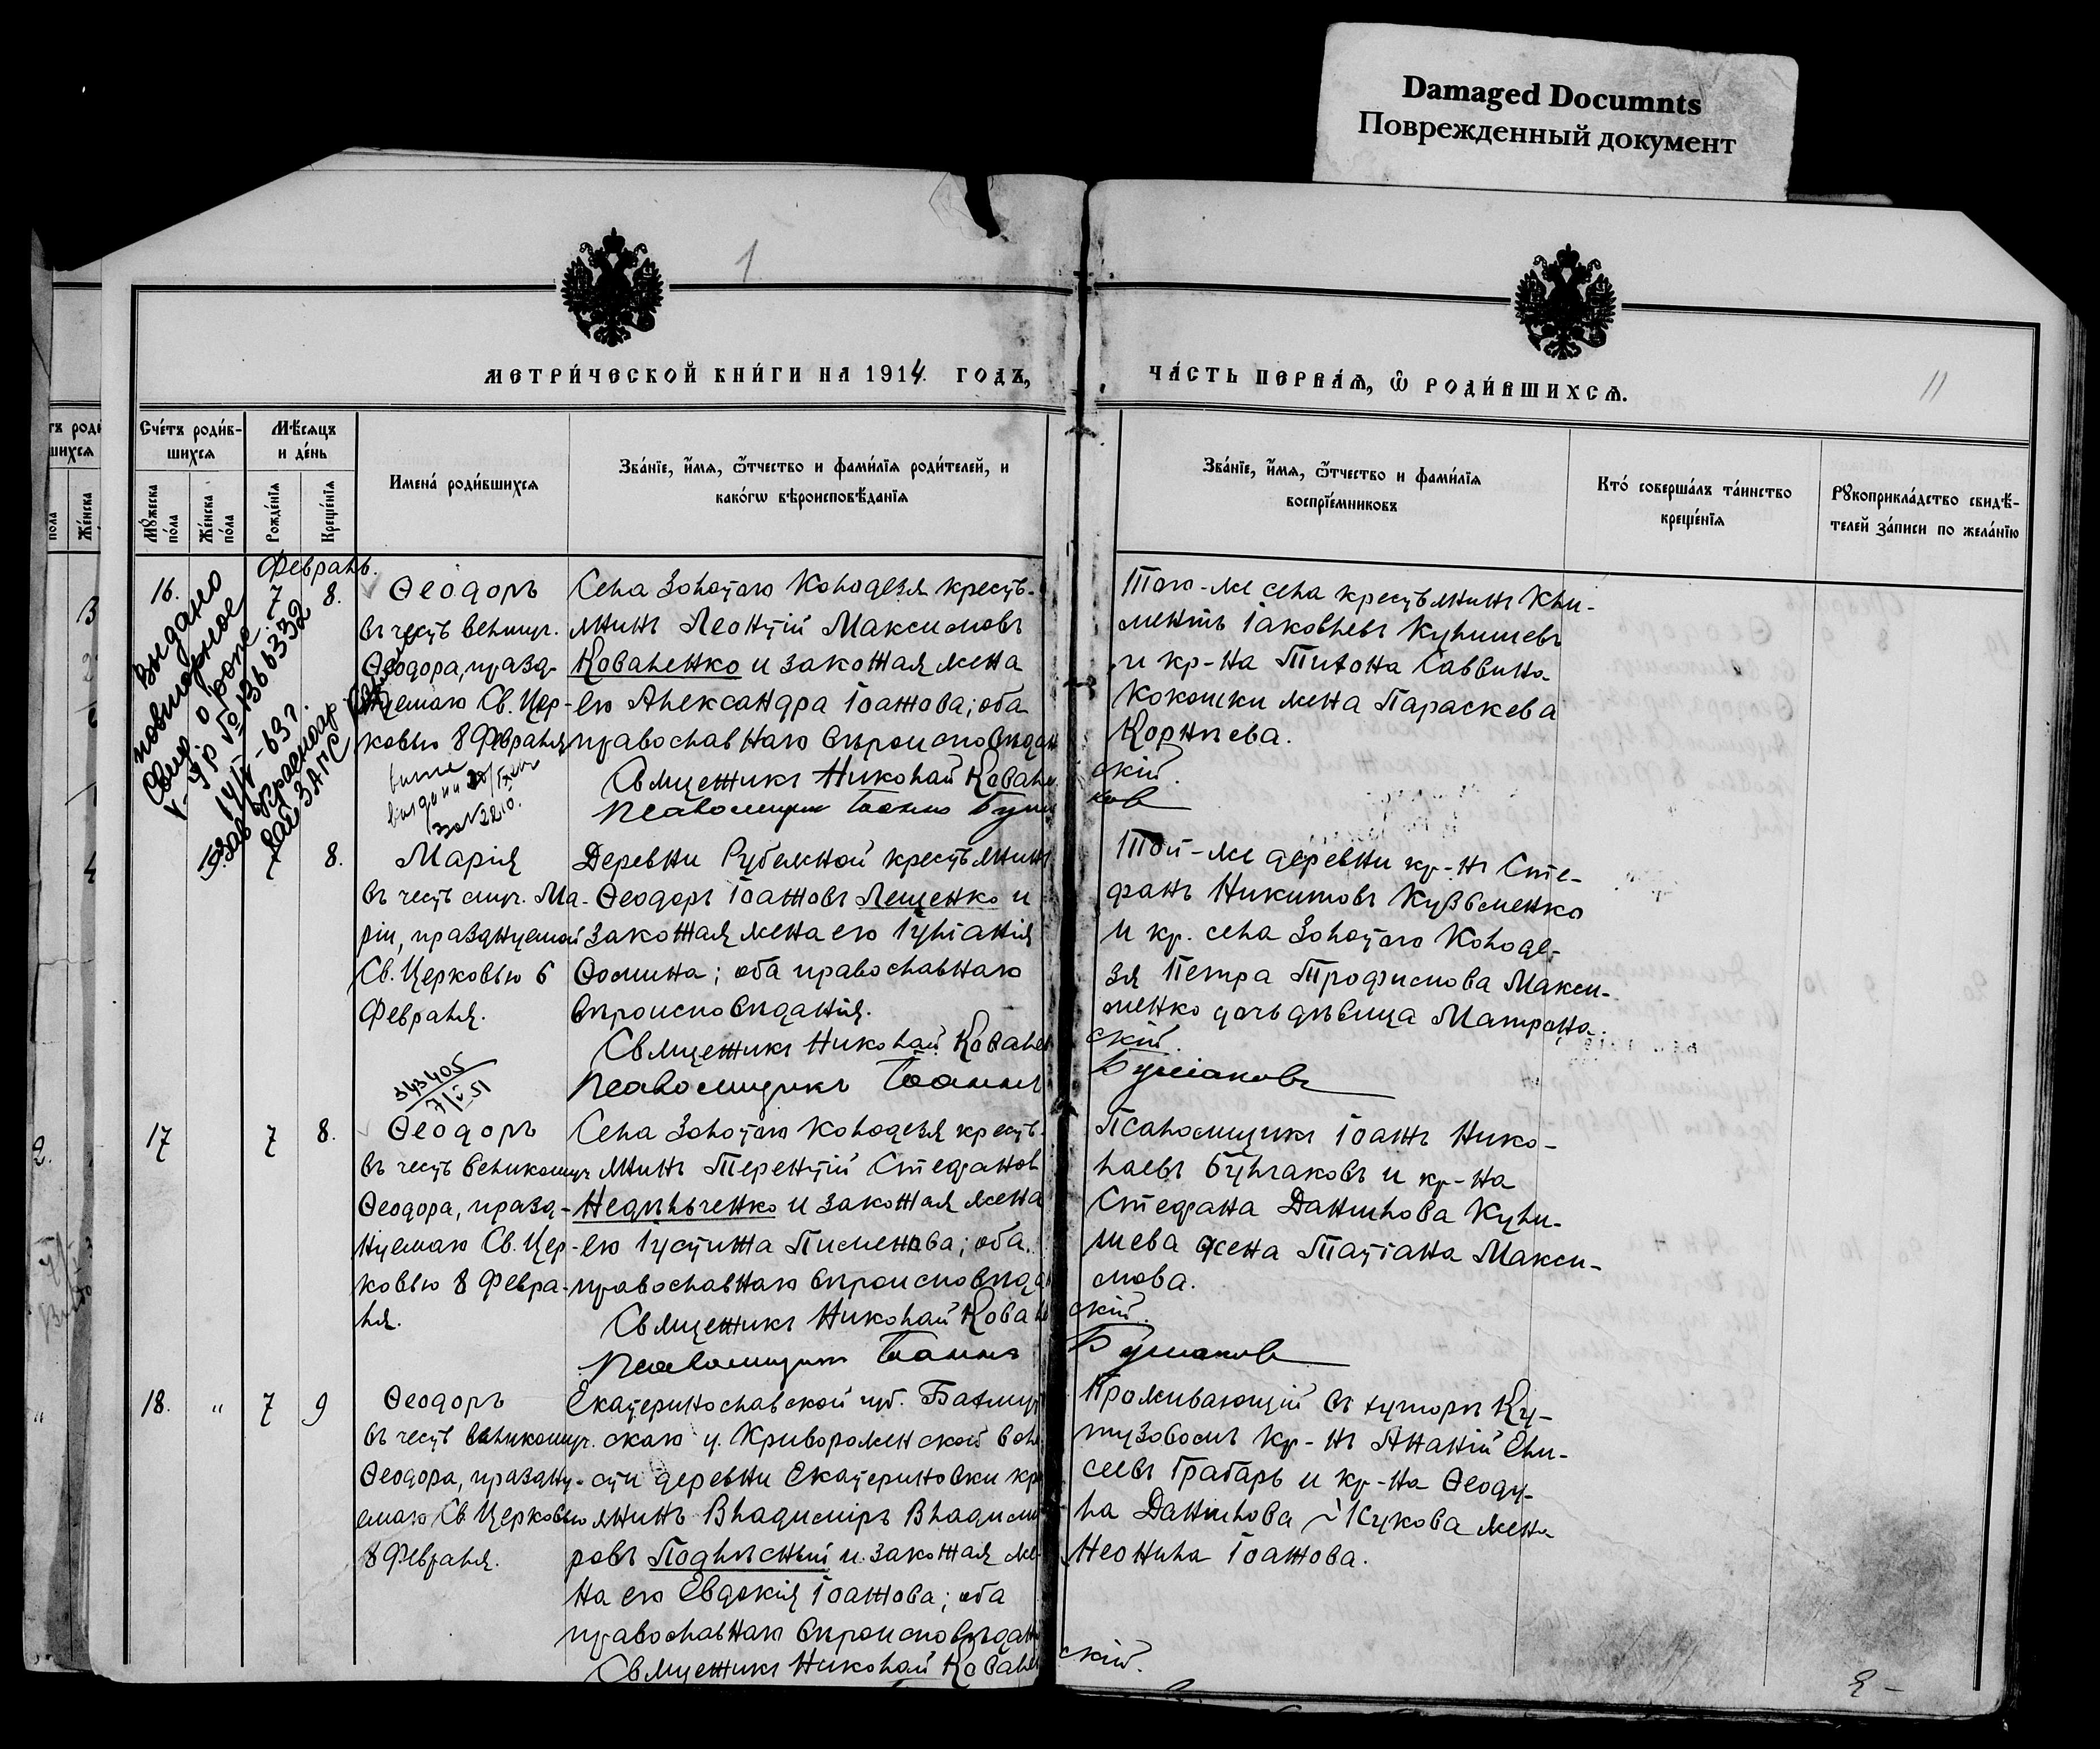 Damaged Documnts
Поврежденный документ
1
МЕТРИ́ЧЕСКОЙ КНИ́ГИ НА 1914 ГОДЪ,
ЧА́СТЬ ПЕ́РВАѦ, Ѽ РОДИ́ВШИХСѦ.
11
Сче́тъ роди́в-
шихсѧ
Мѣ́сѧцъ
и де́нь
Мꙋ́жеска по́ла
Же́нска по́ла
Рожде́нїѧ
Креще́нїѧ
Имена́ роди́вшихсѧ
Зва́нїе, и҆́мѧ, ѻ҆́тчество и фами́лїѧ роди́телей, и
како́гѡ вѣроисповѣ́данїѧ
Зва́нїе, и҆́мѧ, ѻ҆́тчество и фами́лїѧ
воспрїе́мниковъ
Кто́ соверша́лъ та́инство
креще́нїѧ
Рꙋкоприкла́дство свидѣ́-
телей за́писи по жела́нїю
Февраль.
16.
7
8.
Ѳеодоръ
въ честь великмуч.
Ѳеодора, празд-
нуемаго Св. Цер-
ковью 8 Февраля
Села Золотаго Колодезя кресть-
янинъ Леонтій Максимовъ
Коваленко и законная жена
его Александра Іоаннова; оба
православнаго вѣроисповѣдан
Священникъ Николай Ковале
Псаломщикъ Іоаннъ
Того-же села крестьянинъ Кли-
ментъ Іаковлевъ Кулишевъ
и кр-на Тихона Саввина
Кокошки жена Параскева
Корнѣева.
скій.
ков
Выдано
повторное
свид. о рожд.
V-УР № 1366332
14/V-63 г.
8.
Марія
въ честь муч. Ма-
ріи, празднуемой
Св. Церковью 6
Февраля.
Деревни Рубежной крестьянинъ
Ѳеодоръ Іоанновъ Лещенко и
законная жена его Іуліанія
Ѳомина; оба православнаго
вѣроисповѣданія.
Священникъ Николай Ковале
Псаломщикъ Іоаннъ
Той-же деревни кр-нъ Сте-
фанъ Никитовъ Кузьменко
и кр. села Золотаго Колоде-
зя Петра Трофимова Макси-
менко дочь дѣвица Матрона.
скій.
Булгаковъ
343405
7/V 51
17
7
8.
Ѳеодоръ
въ честь великомуч
Ѳеодора, празд-
нуемаго Св. Цер-
ковью 8 Февра-
ля.
Села Золотаго Колодезя кресть-
янинъ Терентій Стефанов
Недѣльченко и законная жена
его Іустина Пименова; оба
православнаго вѣроисповѣда
Священникъ Николай Ковале
Псаломщикъ Іоаннъ
Псаломщикъ Іоаннъ Нико-
лаевъ Булгаковъ и кр-на
Стефана Данилова Кули-
шева жена Татіана Макси-
мова.
скій.
Булгаков
18.
"
7
9
Ѳеодоръ
въ честь великомуч.
Ѳеодора, праздну-
емаго Св. Церковью
8 Февраля.
Екатеринославской губ. Бахмут
скаго у. Криворожской воло
сти деревни Екатериновки кре
янинъ Владиміръ Владими
ровъ Подлѣсный и законная же-
на его Евдокія Іоаннова; оба
православнаго вѣроисповѣдан
Священникъ Николай Ковале
Проживающій въ хуторѣ Ку-
тузовомъ кр-нъ Ананій Ели-
сеевъ Грабарь и кр-на Ѳеоду-
ла Данилова Жукова жена
Неонила Іоаннова.
скій.